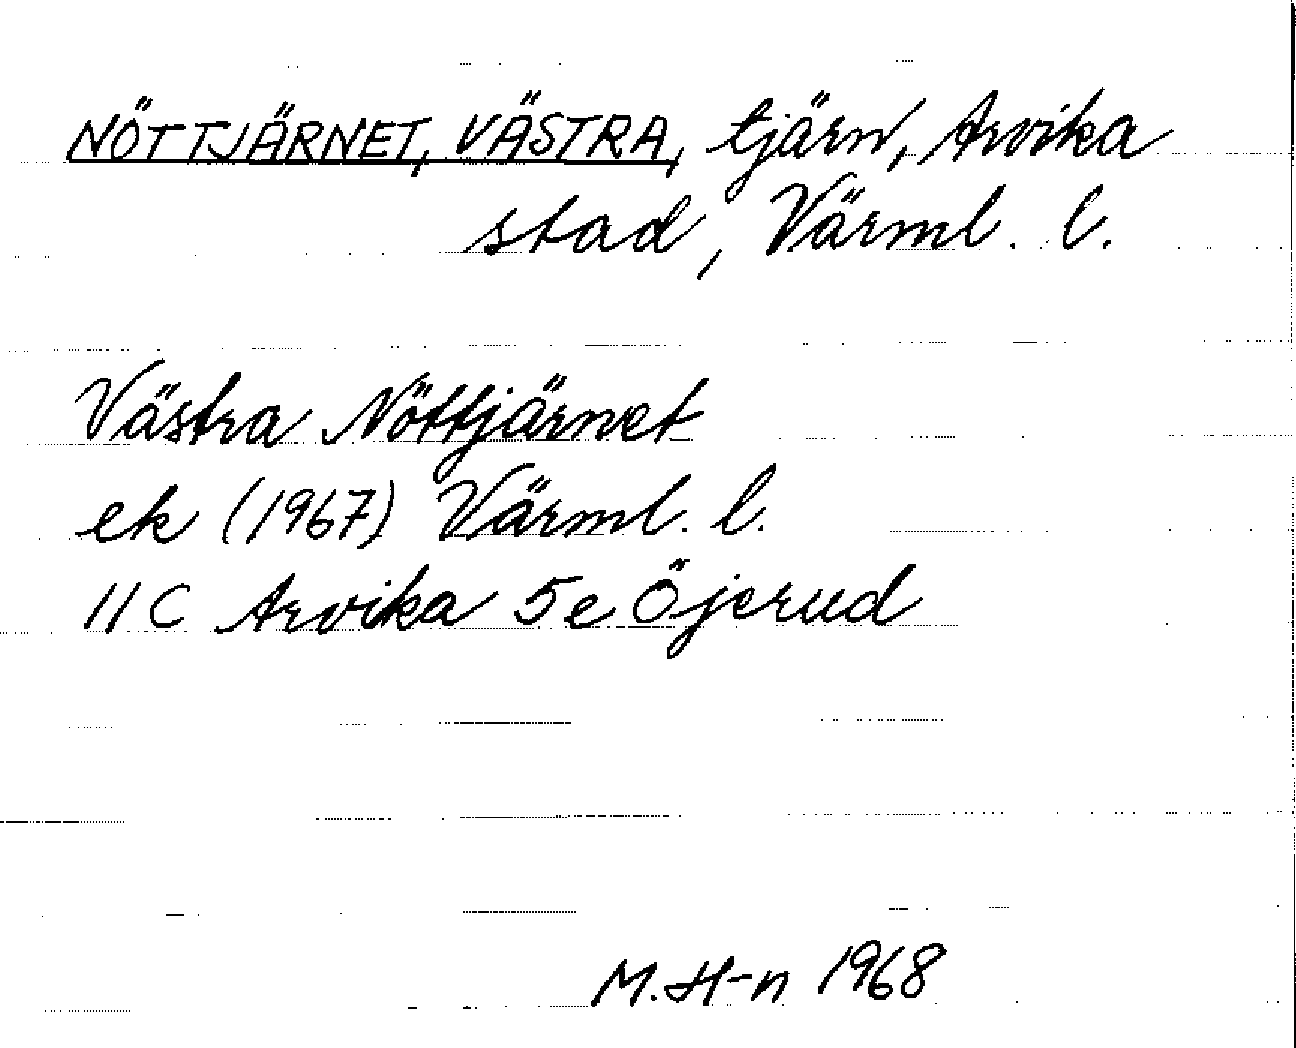 NÖTTJÄRNET, VÄSTRA, tjärn, Arvika
stad, Värml. l.
Västra Nöttjärnet
ek (1967) Värml. l.
11 C Arvika 5e Öjerud
M. H-n 1968